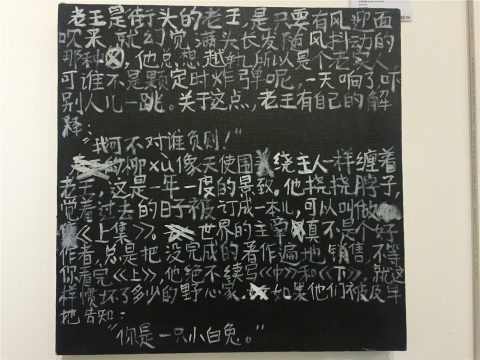 老王是街头的老王,是只要有风迎面
吹来,就幻觉满头长发随风抖动的
那种,他总想越轨,所以是个老实人,
可谁不是颗定时炸弹呢,一天响了吓
别人儿一跳。关于这点,老王有自己的解
释:
“我可不对谁负则!”
的柳xù像天使围绕主人一样缠着
老王,这是一年一度的景致。他挠挠脖子,
觉着过去的日子被订成一本儿,可以叫做
《上集》。世界的主章真是个好
作者,总是把没完成的著作遍地销售,不等
你看完《上》,他绝不续写《中》和《下》,就这
样惯坏了多少的野心家,如果他们被及早
地告知:
“你是一只小白兔。”